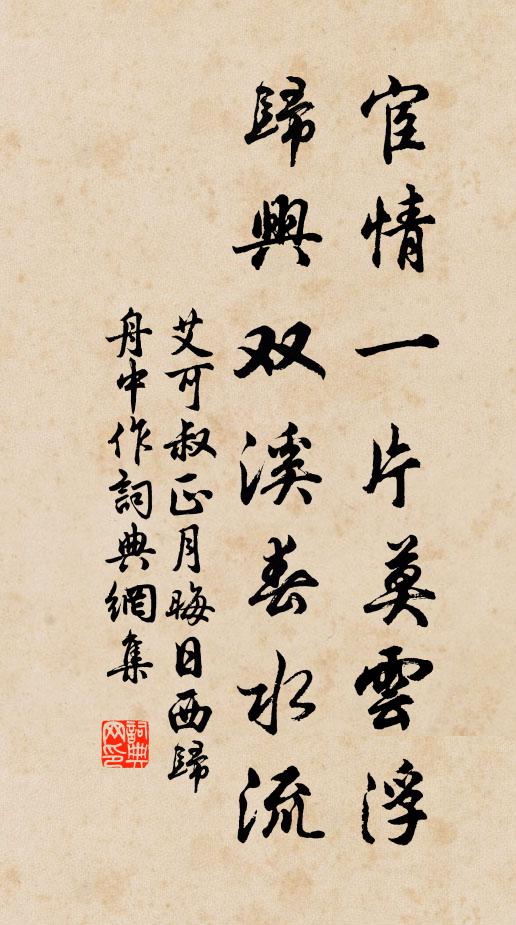 宦情一片莫雲浮
歸興双溪春水流
艾可叔正月晦日西歸
舟中作詞典網集
詞典网印